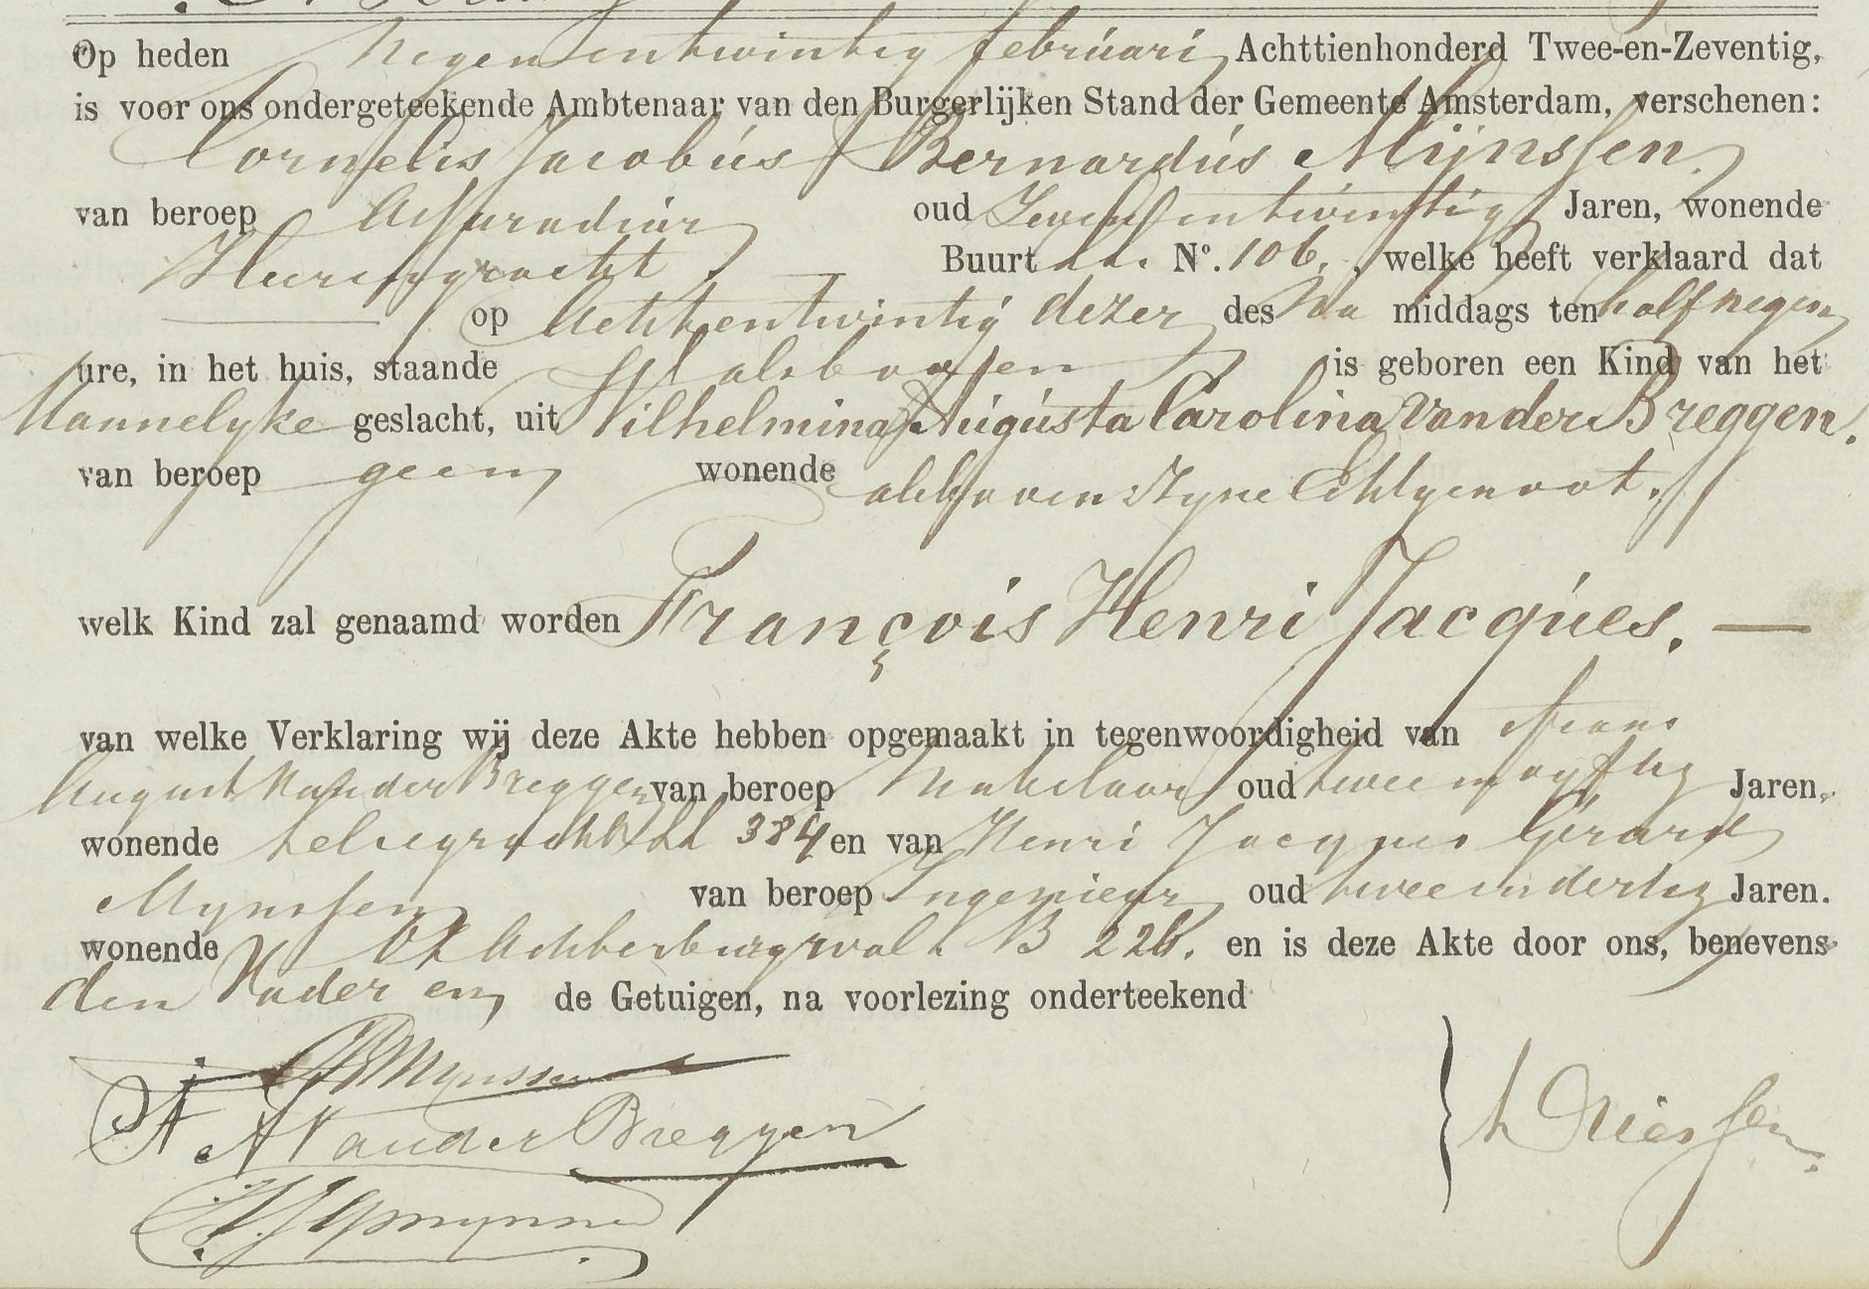 Op heden Negenentwintig februari Achttienhonderd Twee-en-Zeventig,
is voor ons ondergeteekende Ambtenaar van den Burgerlijken Stand der Gemeente Amsterdam, verschenen:
Cornelis Jacobus Bernardus Mijnssen.
van beroep Assuradeur oud Zevenentwintig Jaren, wonende
Heerengracht Buurt LL. No. 106. , welke heeft verklaard dat
op Achtentwintig dezer des Na middags ten half negen
ure, in het huis, staande Als boven is geboren een Kind van het
Mannelyke geslacht, uit Wilhelmina Augusta Carolina van der Breggen.
van beroep geen wonende als boven Zyne Echtgenoot.
welk Kind zal genaamd worden François Henri Jacques. —
van welke Verklaring wij deze Akte hebben opgemaakt in tegenwoordigheid van Frans
August van der Breggen van beroep Makelaar oud twee en vyftig Jaren.
wonende Leliegracht LL 384 en van Henri Jacques Gérard
Mynssen van beroep Ingenieur oud twee en dertig Jaren.
wonende OZ Achterburgwal B 226. en is deze Akte door ons, benevens
den Vader en de Getuigen, na voorlezing onderteekend
CJB Mynssen
F A van der Breggen
HJG Mynssen
Driessen.